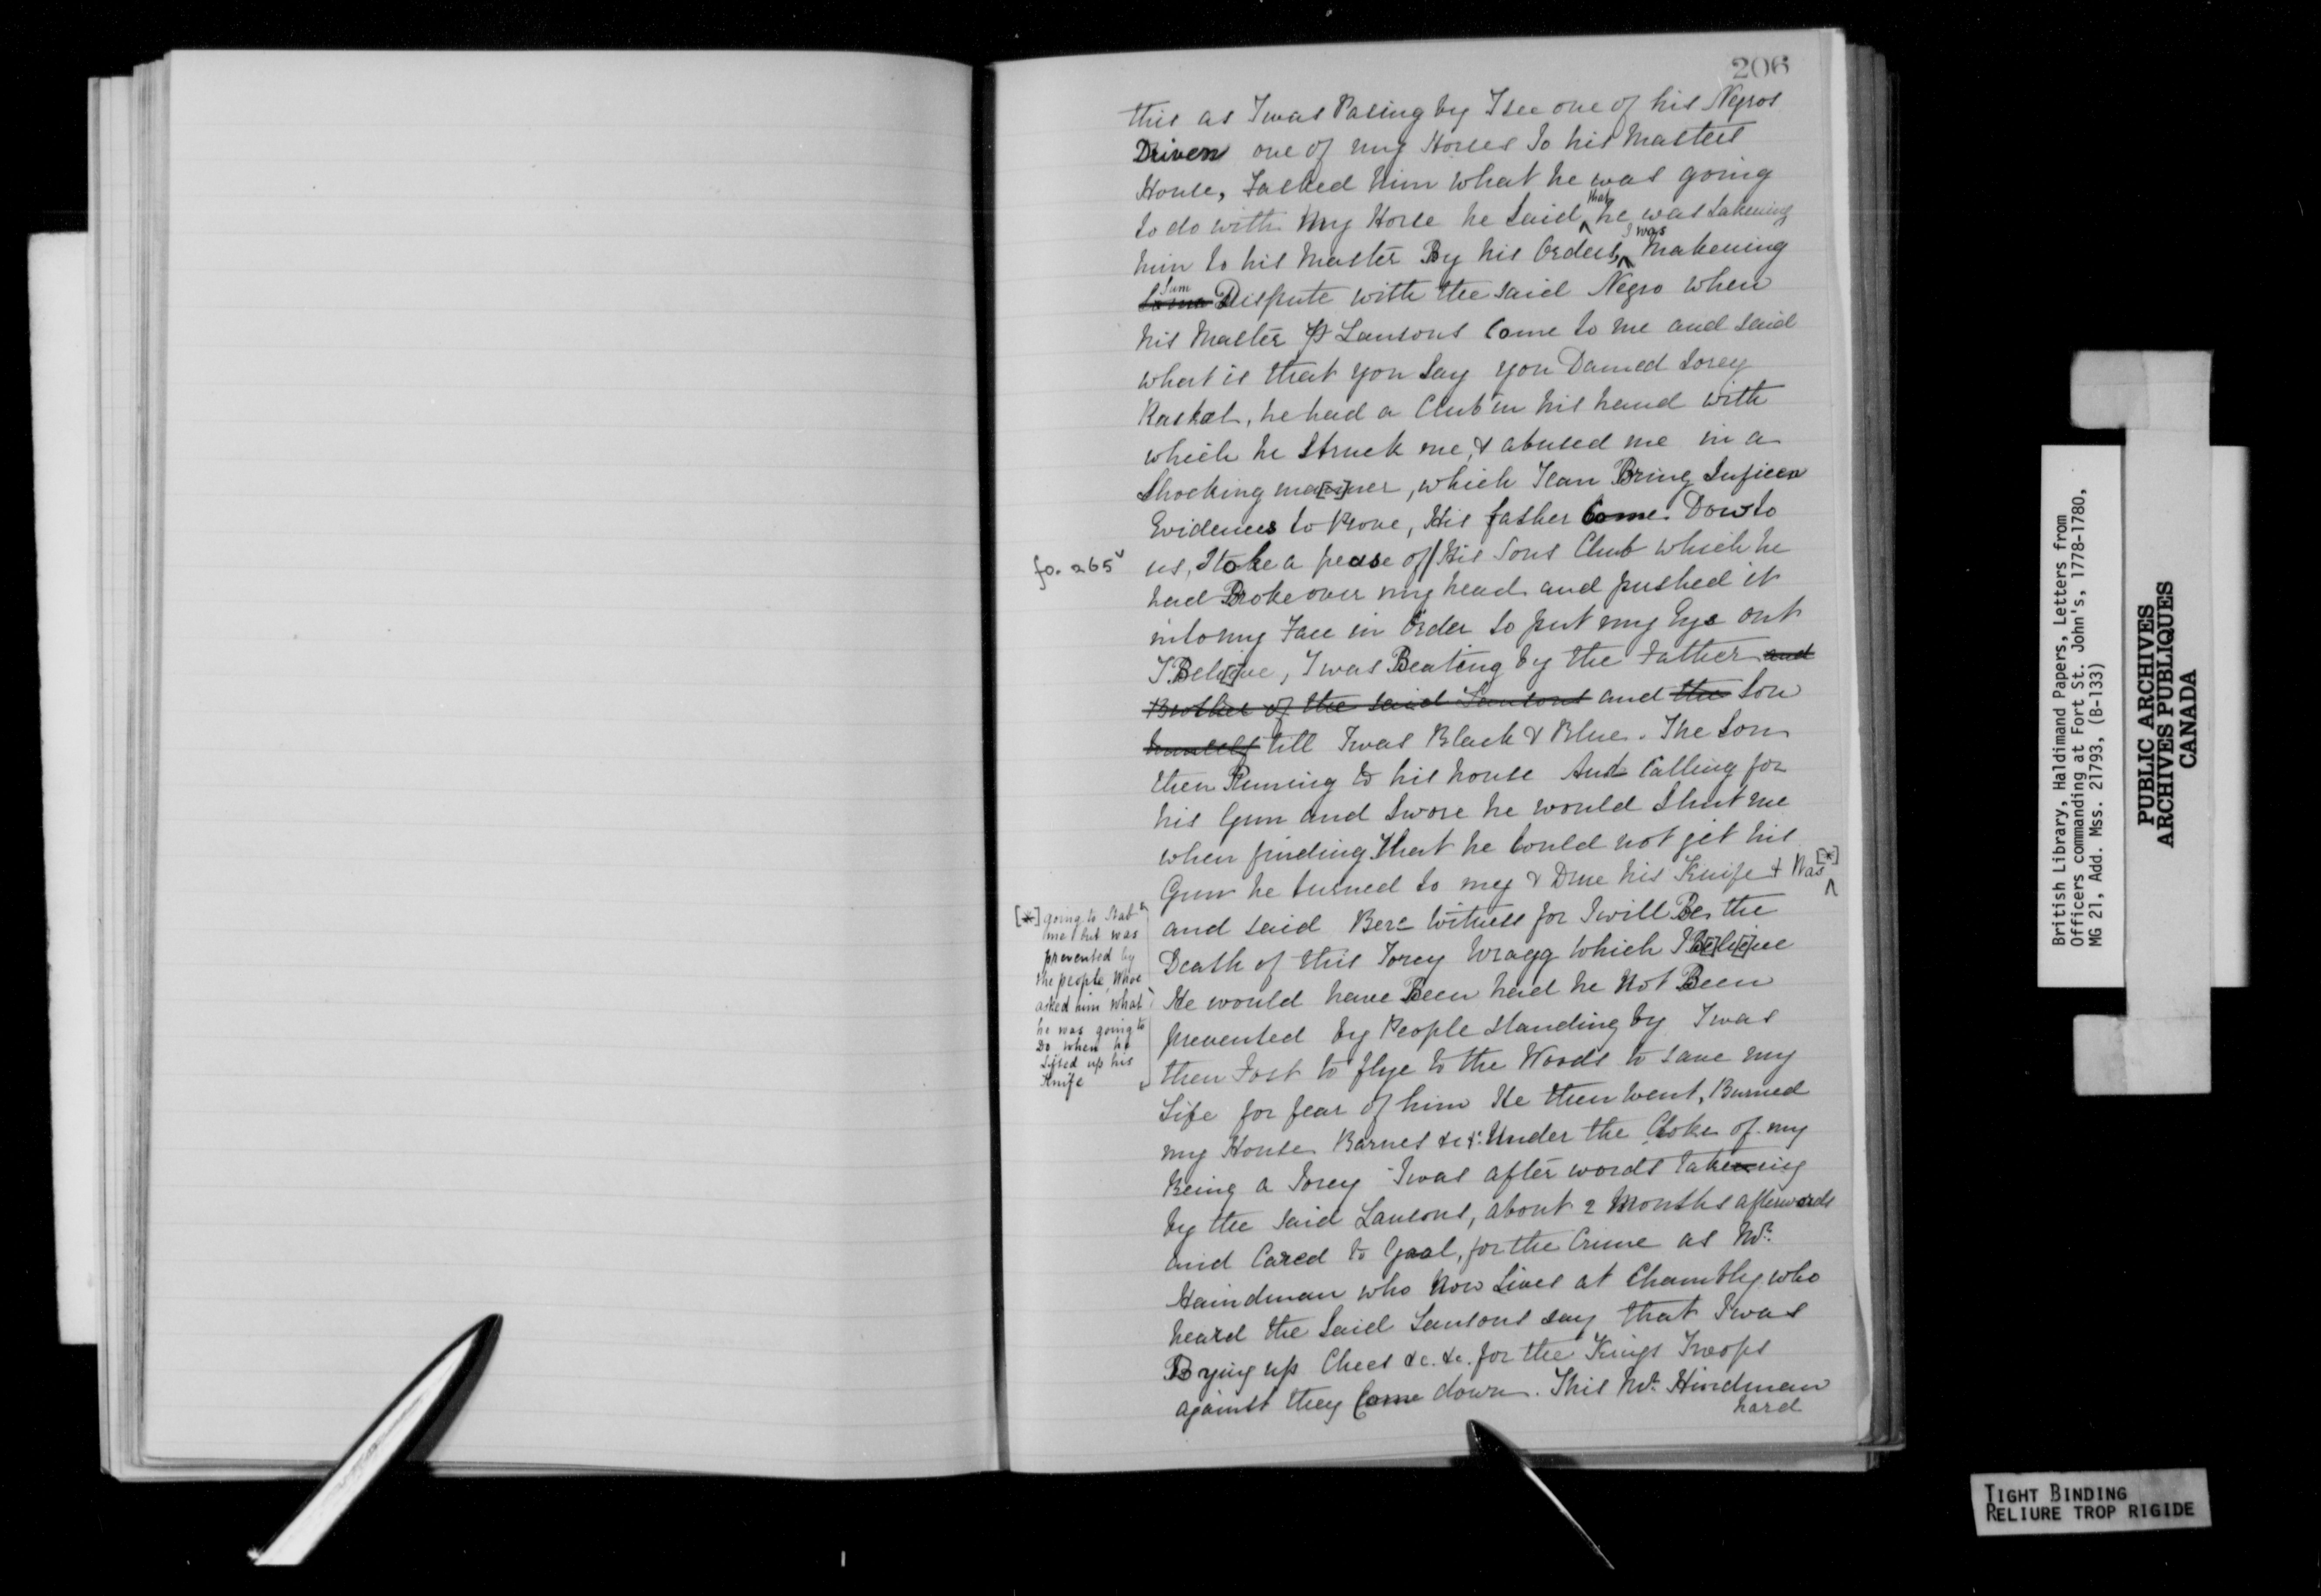 206
this as I was Pasing by I see one of his Negros
Driven one of my Horses To his Masters
House, I asked him what he was going
to do with my Horse he Said that he was takening
him to his Master By his Orders, I was Makening
Sum Dispute with the said Negro when
his Master P Lansons Come to me and said
what is that you Say you Damed Torey
Raskal, he had a Club in his hand with
which he Struck me, & abused me in a
Shocking manner, which I can Bring Suficen
Evidences to Prove, His father Come Dow to
fo. 265v
us, & toke a pease of/ his Sons Club which he
had Broke over my head and pushed it
into my Face in Order to put my Eys out
I Belive, I was Beating by the Father and
Brother of the said Lansons and the Son
himself till I was Black & Blue. The Son
then Runing to his house And Calling for
his Gun and Swore he would Shut me
when finding that he Could not git his
Gun he turned to mey & Drue his Knife & Was [*]
[*] going to Stab
me but was
prevented by
the people, Whoe
asked him what
he was going to
Do when he
Lifted up his
Knife
and said Bere Witness for I will Be the
Death of this Torey Wragg which I Belive
He would have Been had he Not Been
prevented by People standing by I was
then Fost to flye to the Woods to save my
Life for fear of him He then went, Burned
my House Barnes &c &: Under the Cloke of my
Being a Torey I was after words Takening
by the said Lansons, about 2 Months afterwords
and Cared to Goal, for the Crime as Mr.
Haindman who Now Lives at Chambly who
heard the Said Lansons say that I was
Bying up Chees &c. &c. for the Kings Troops
against they Come down. This Mr. Hindman
hard
British Library, Haldimand Papers, Letters from
Officers commanding at Fort St. John's, 1778-1780,
MG 21, Add. Mss. 21793, (B-133)
PUBLIC ARCHIVES
ARCHIVES PUBLIQUES
CANADA
TIGHT BINDING
RELIURE TROP RIGIDE